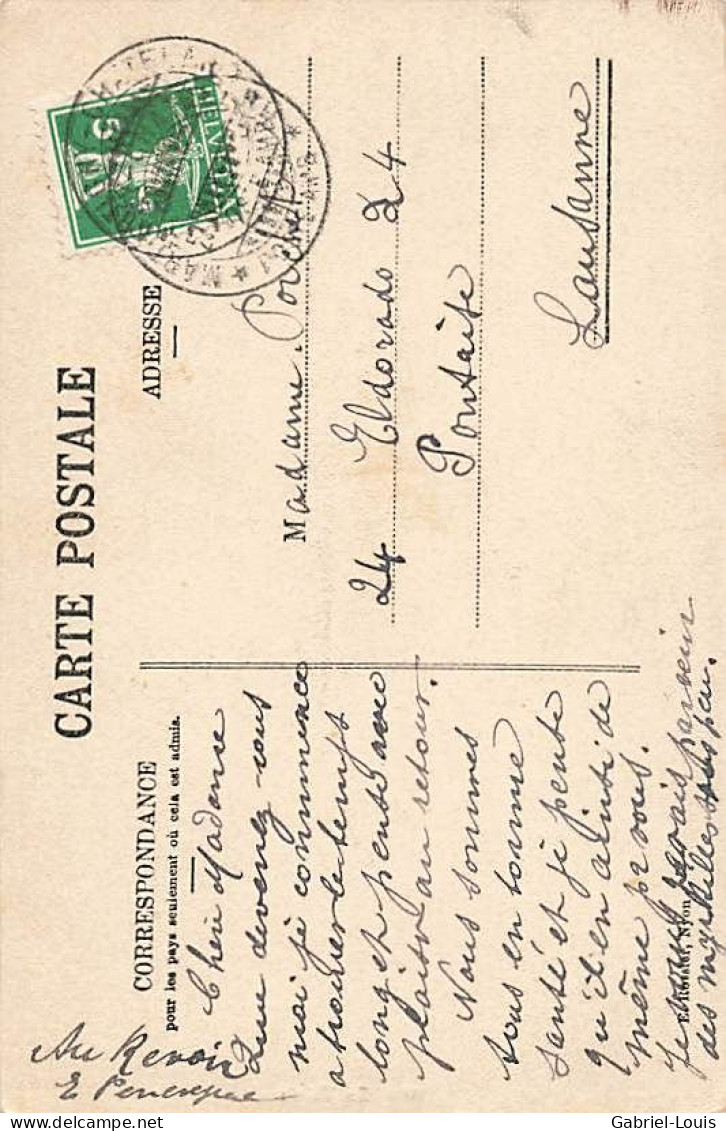 CARTE POSTALE
CORRESPONDANCE
pour les pays seulement où cela est admis.
ADRESSE
HELVETIA
5
Chère Madame
Que devenez-vous
moi je commence
a trouver le temps
long et pense avec
plaisir au retour.
Nous sommes
tous en bonne
santé et je pense
qu'il en ainsi de
même pr vous.
Je vous
des myrtilles sous peu.
Au Revoir
E
Madame
24 Eldorado 24
Pontaise
Lausanne
Nyon
Gabriel-Louis